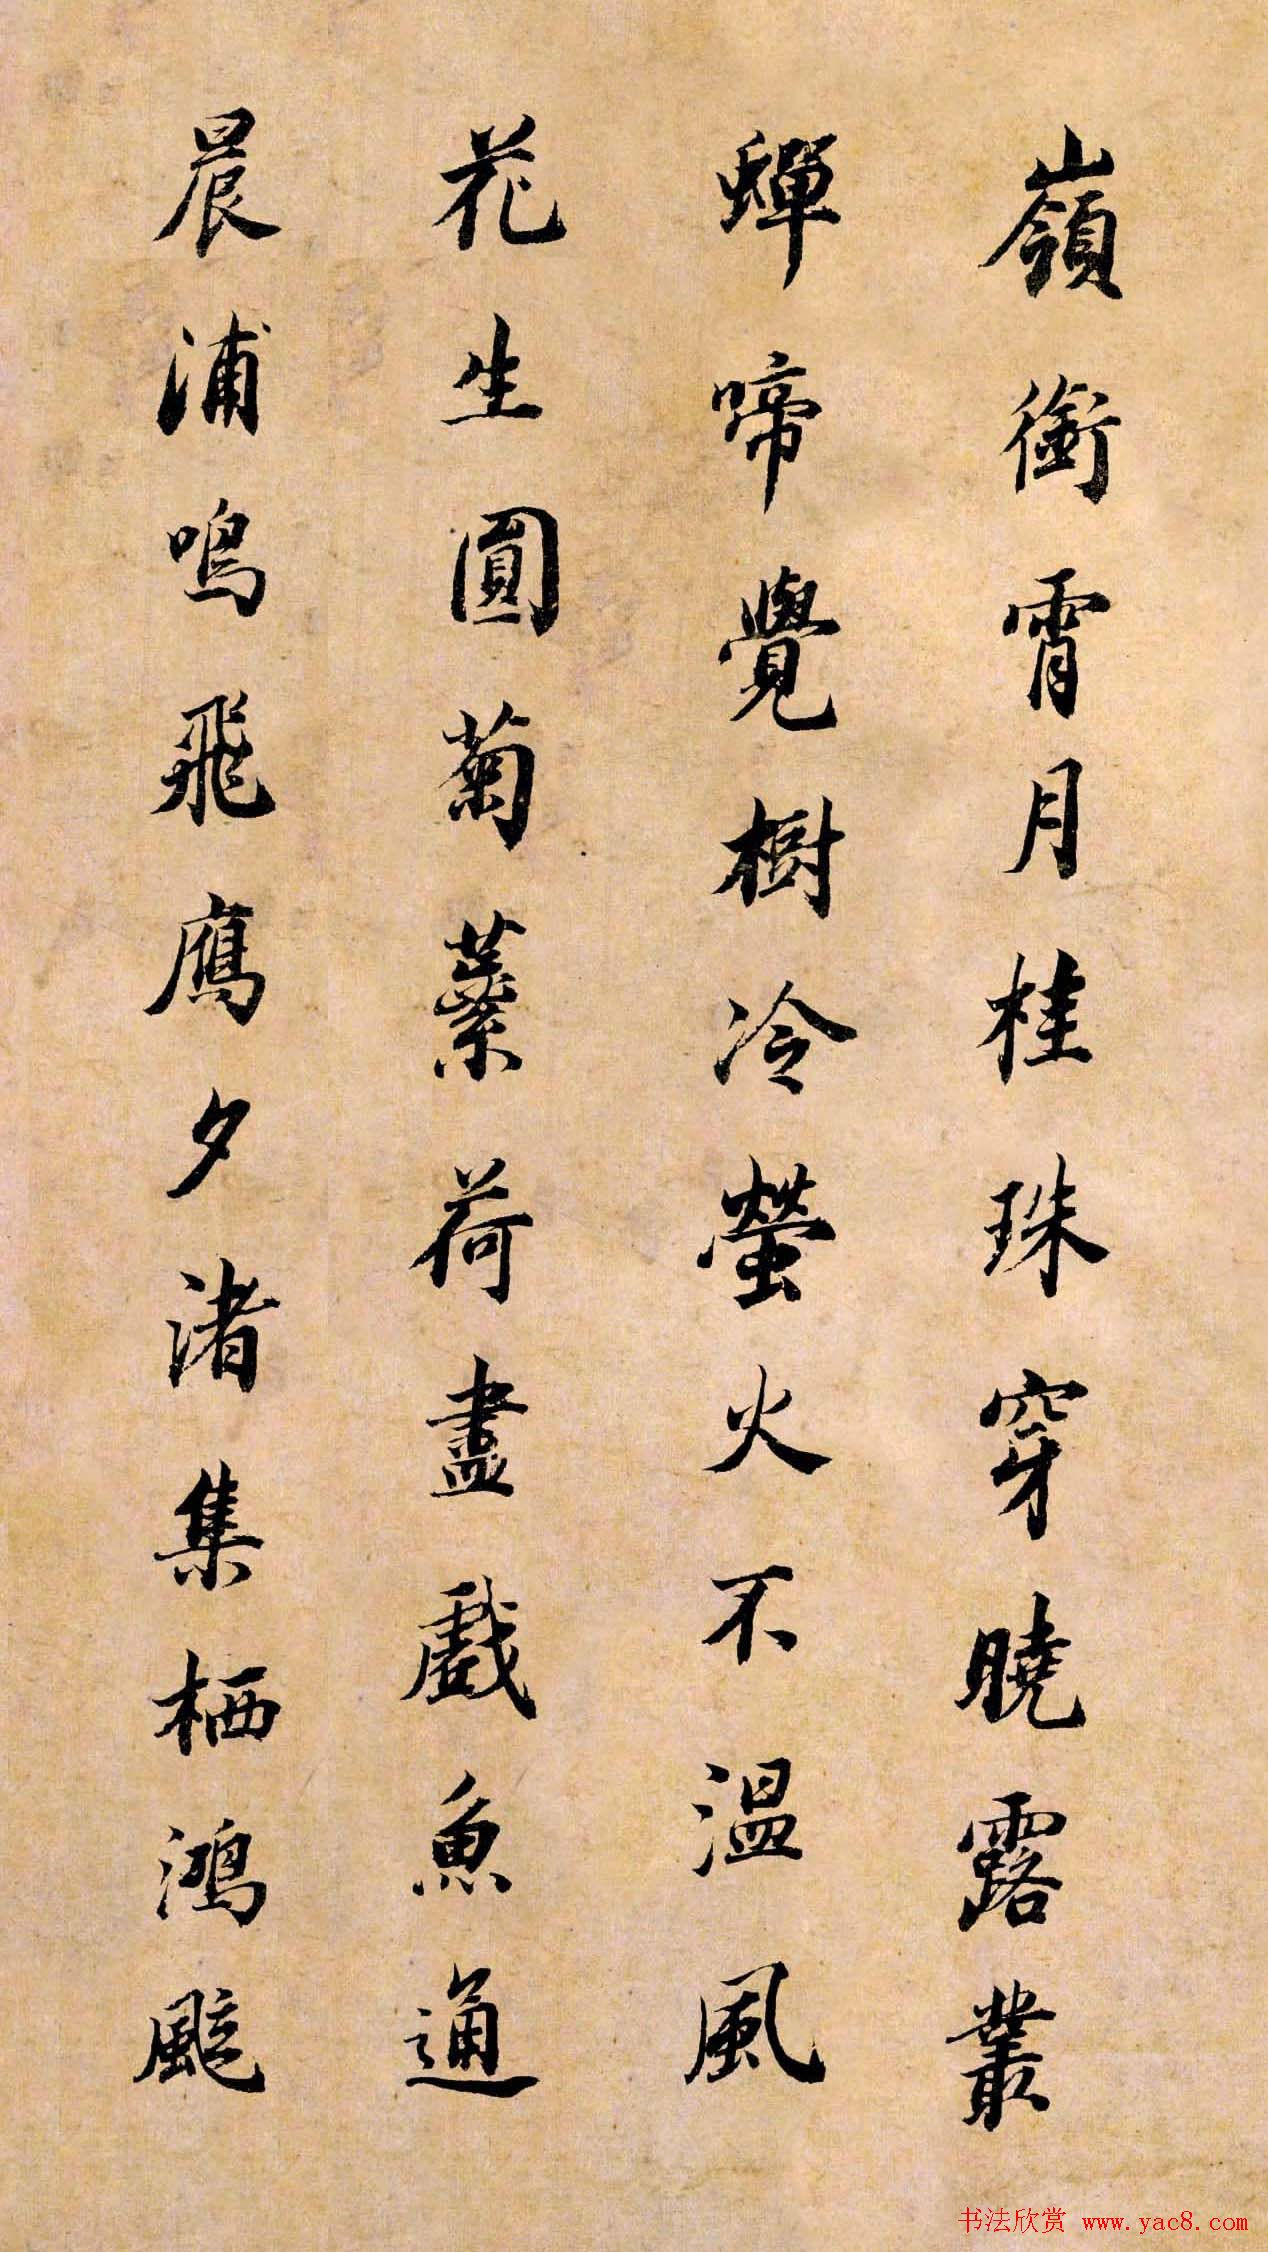 嶺銜霄月桂珠穿曉露叢
蟬啼覺樹冷螢火不溫風
花生圓菊蘂荷盡戲魚通
晨浦鳴飛鴈夕渚集栖鴻
颭
书法欣赏 www.yac8.com